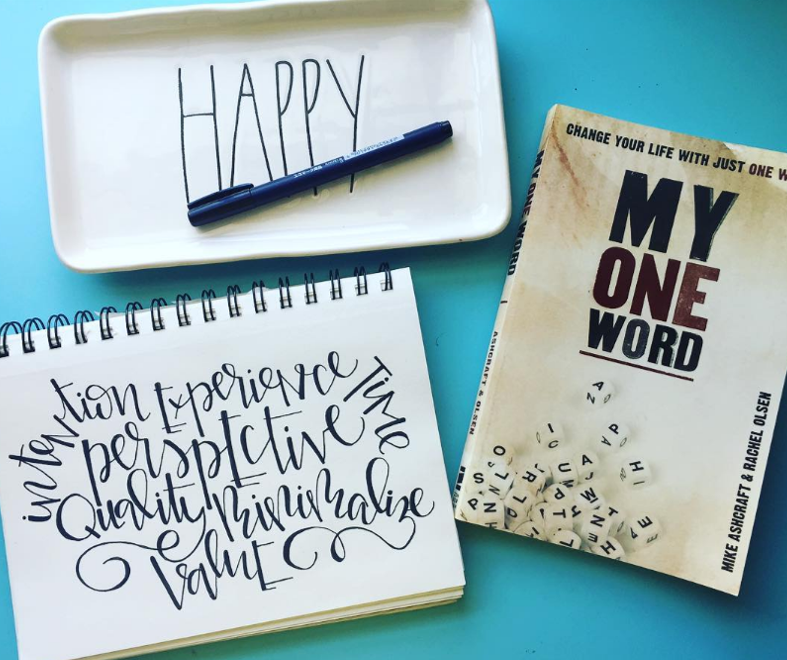 HAPPY
CHANGE YOUR LIFE WITH JUST ONE W
MY
ONE
WORD
MIKE ASHCRAFT & RACHEL OLSEN
MY ONE WORD
ASHCRAFT & OLSEN
intention Experience Time
perspective
Quality minimalize
Value